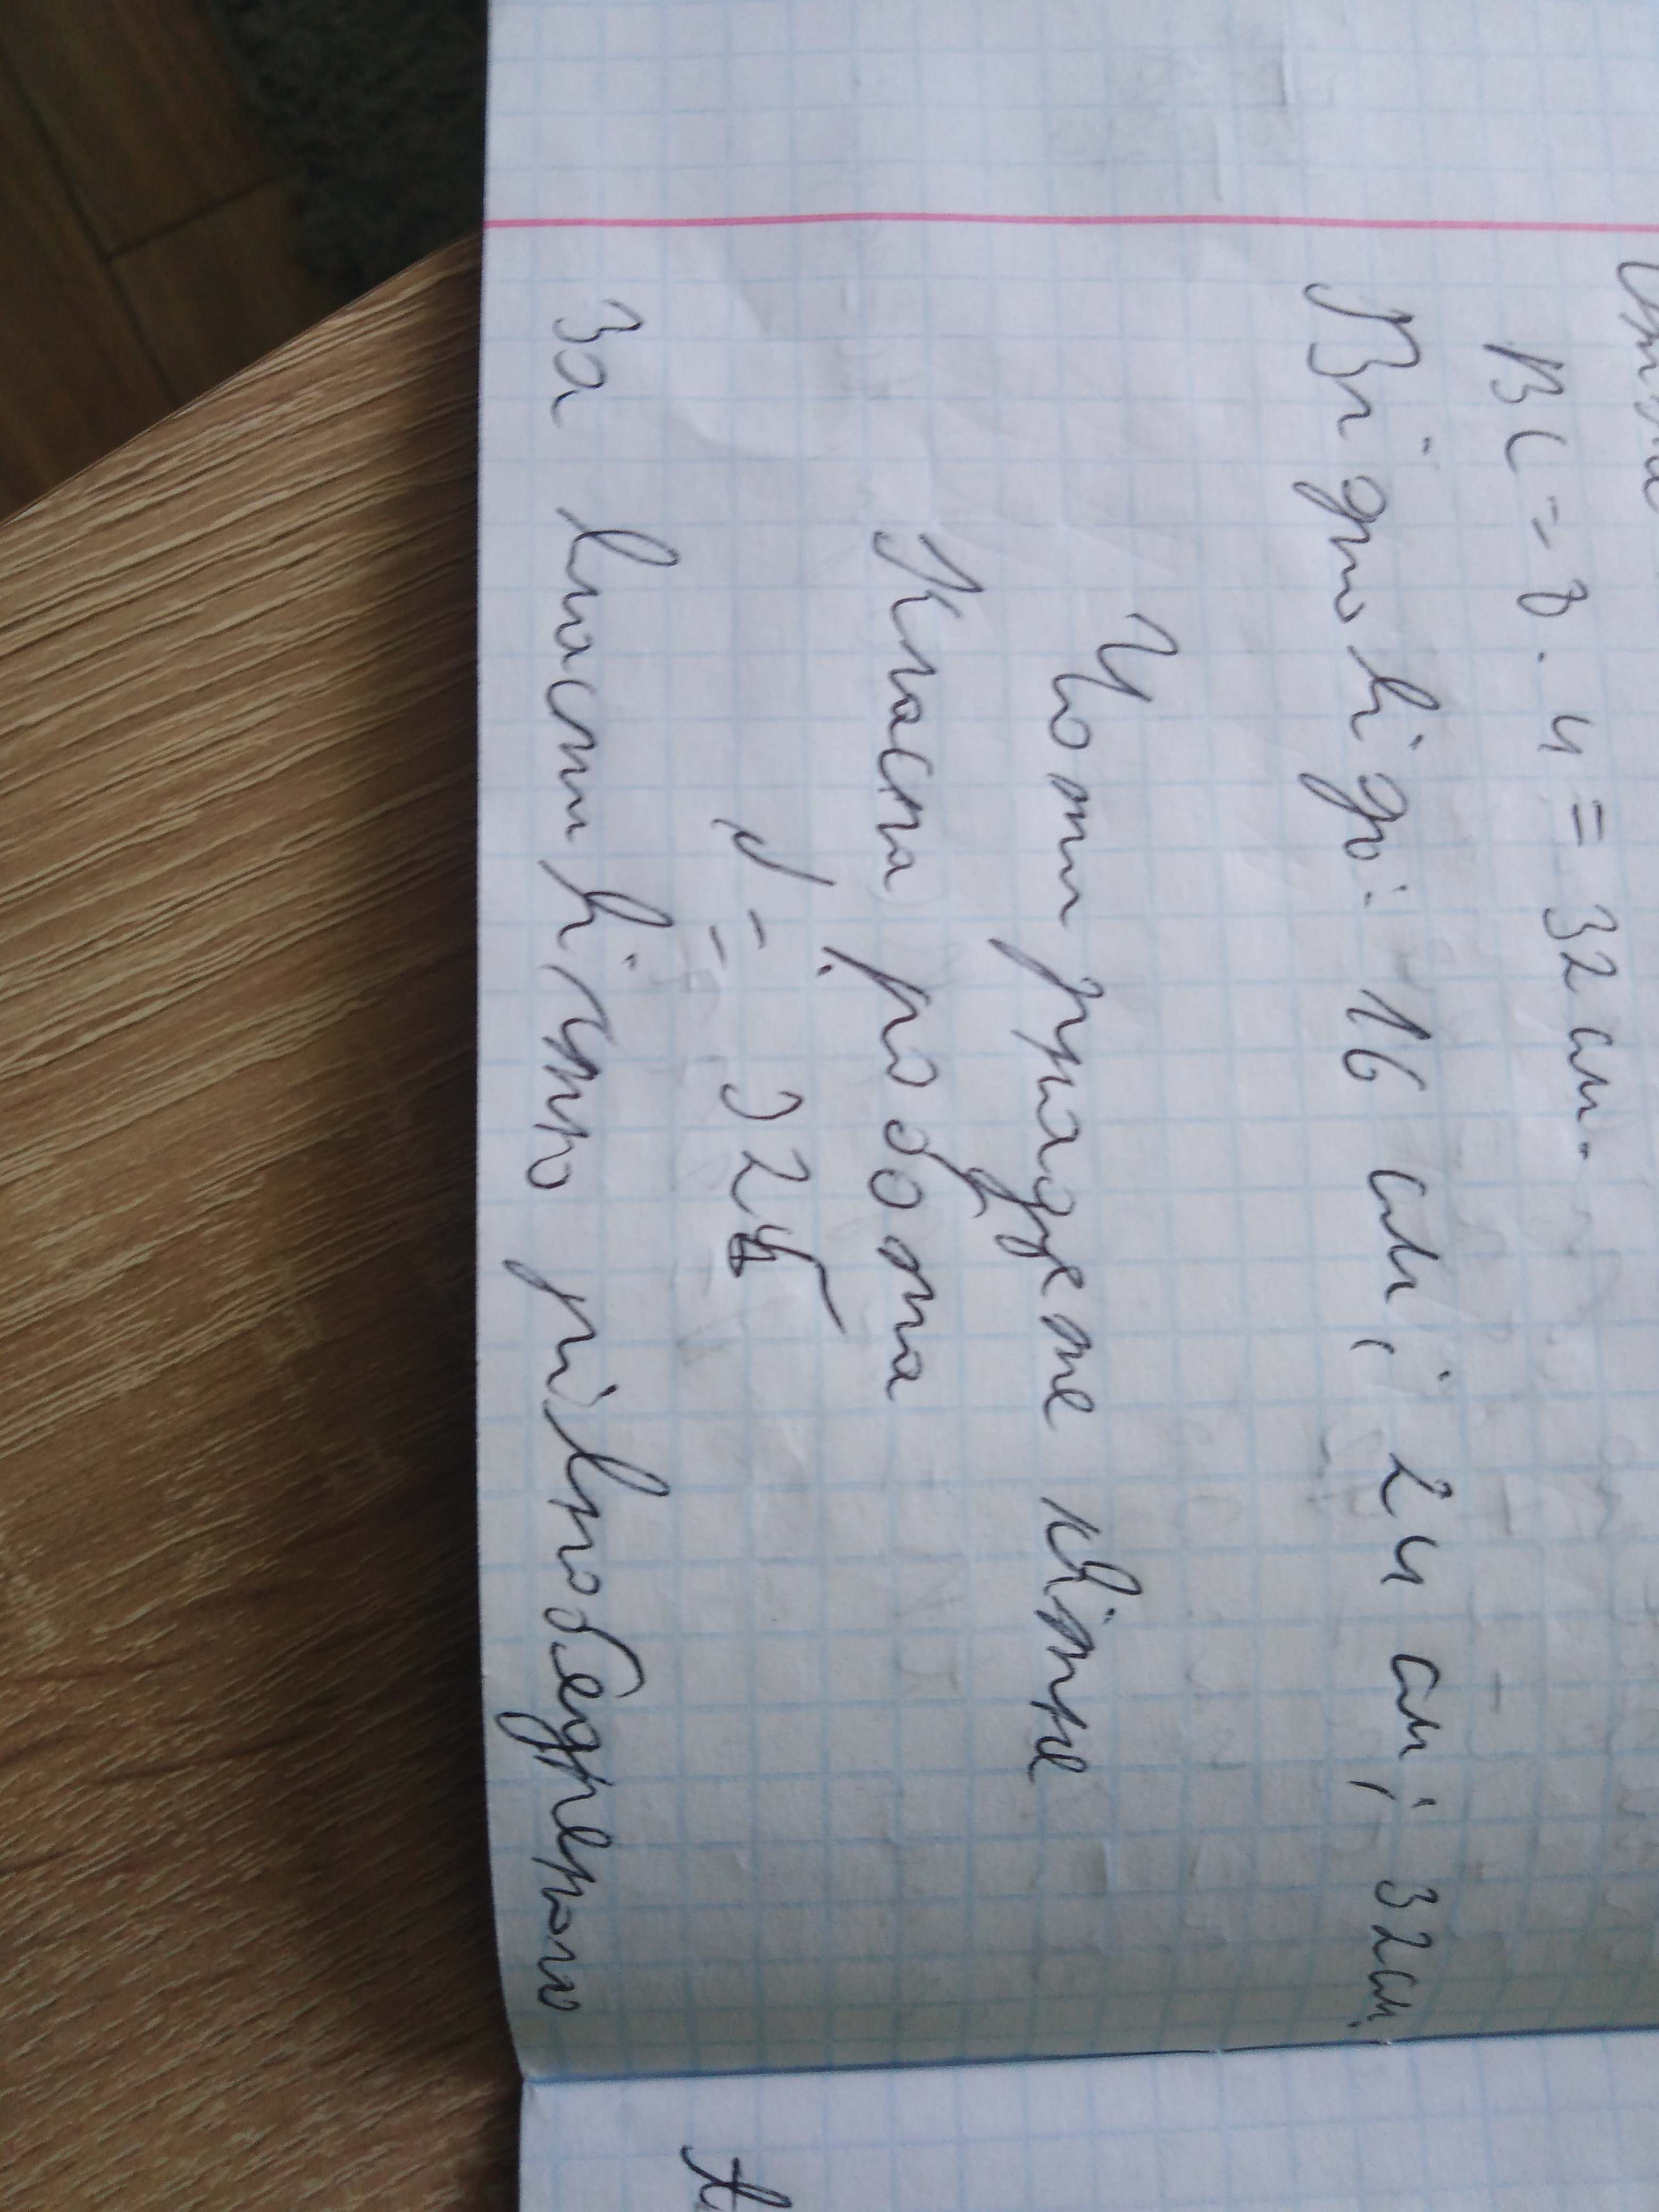 BC = 8 · 4 = 32 см.
Відповідь: 16 см; 24 см; 32см.
Чотирнадцяте квітня
Класна робота
№ 324
За властивістю рівнобедреного